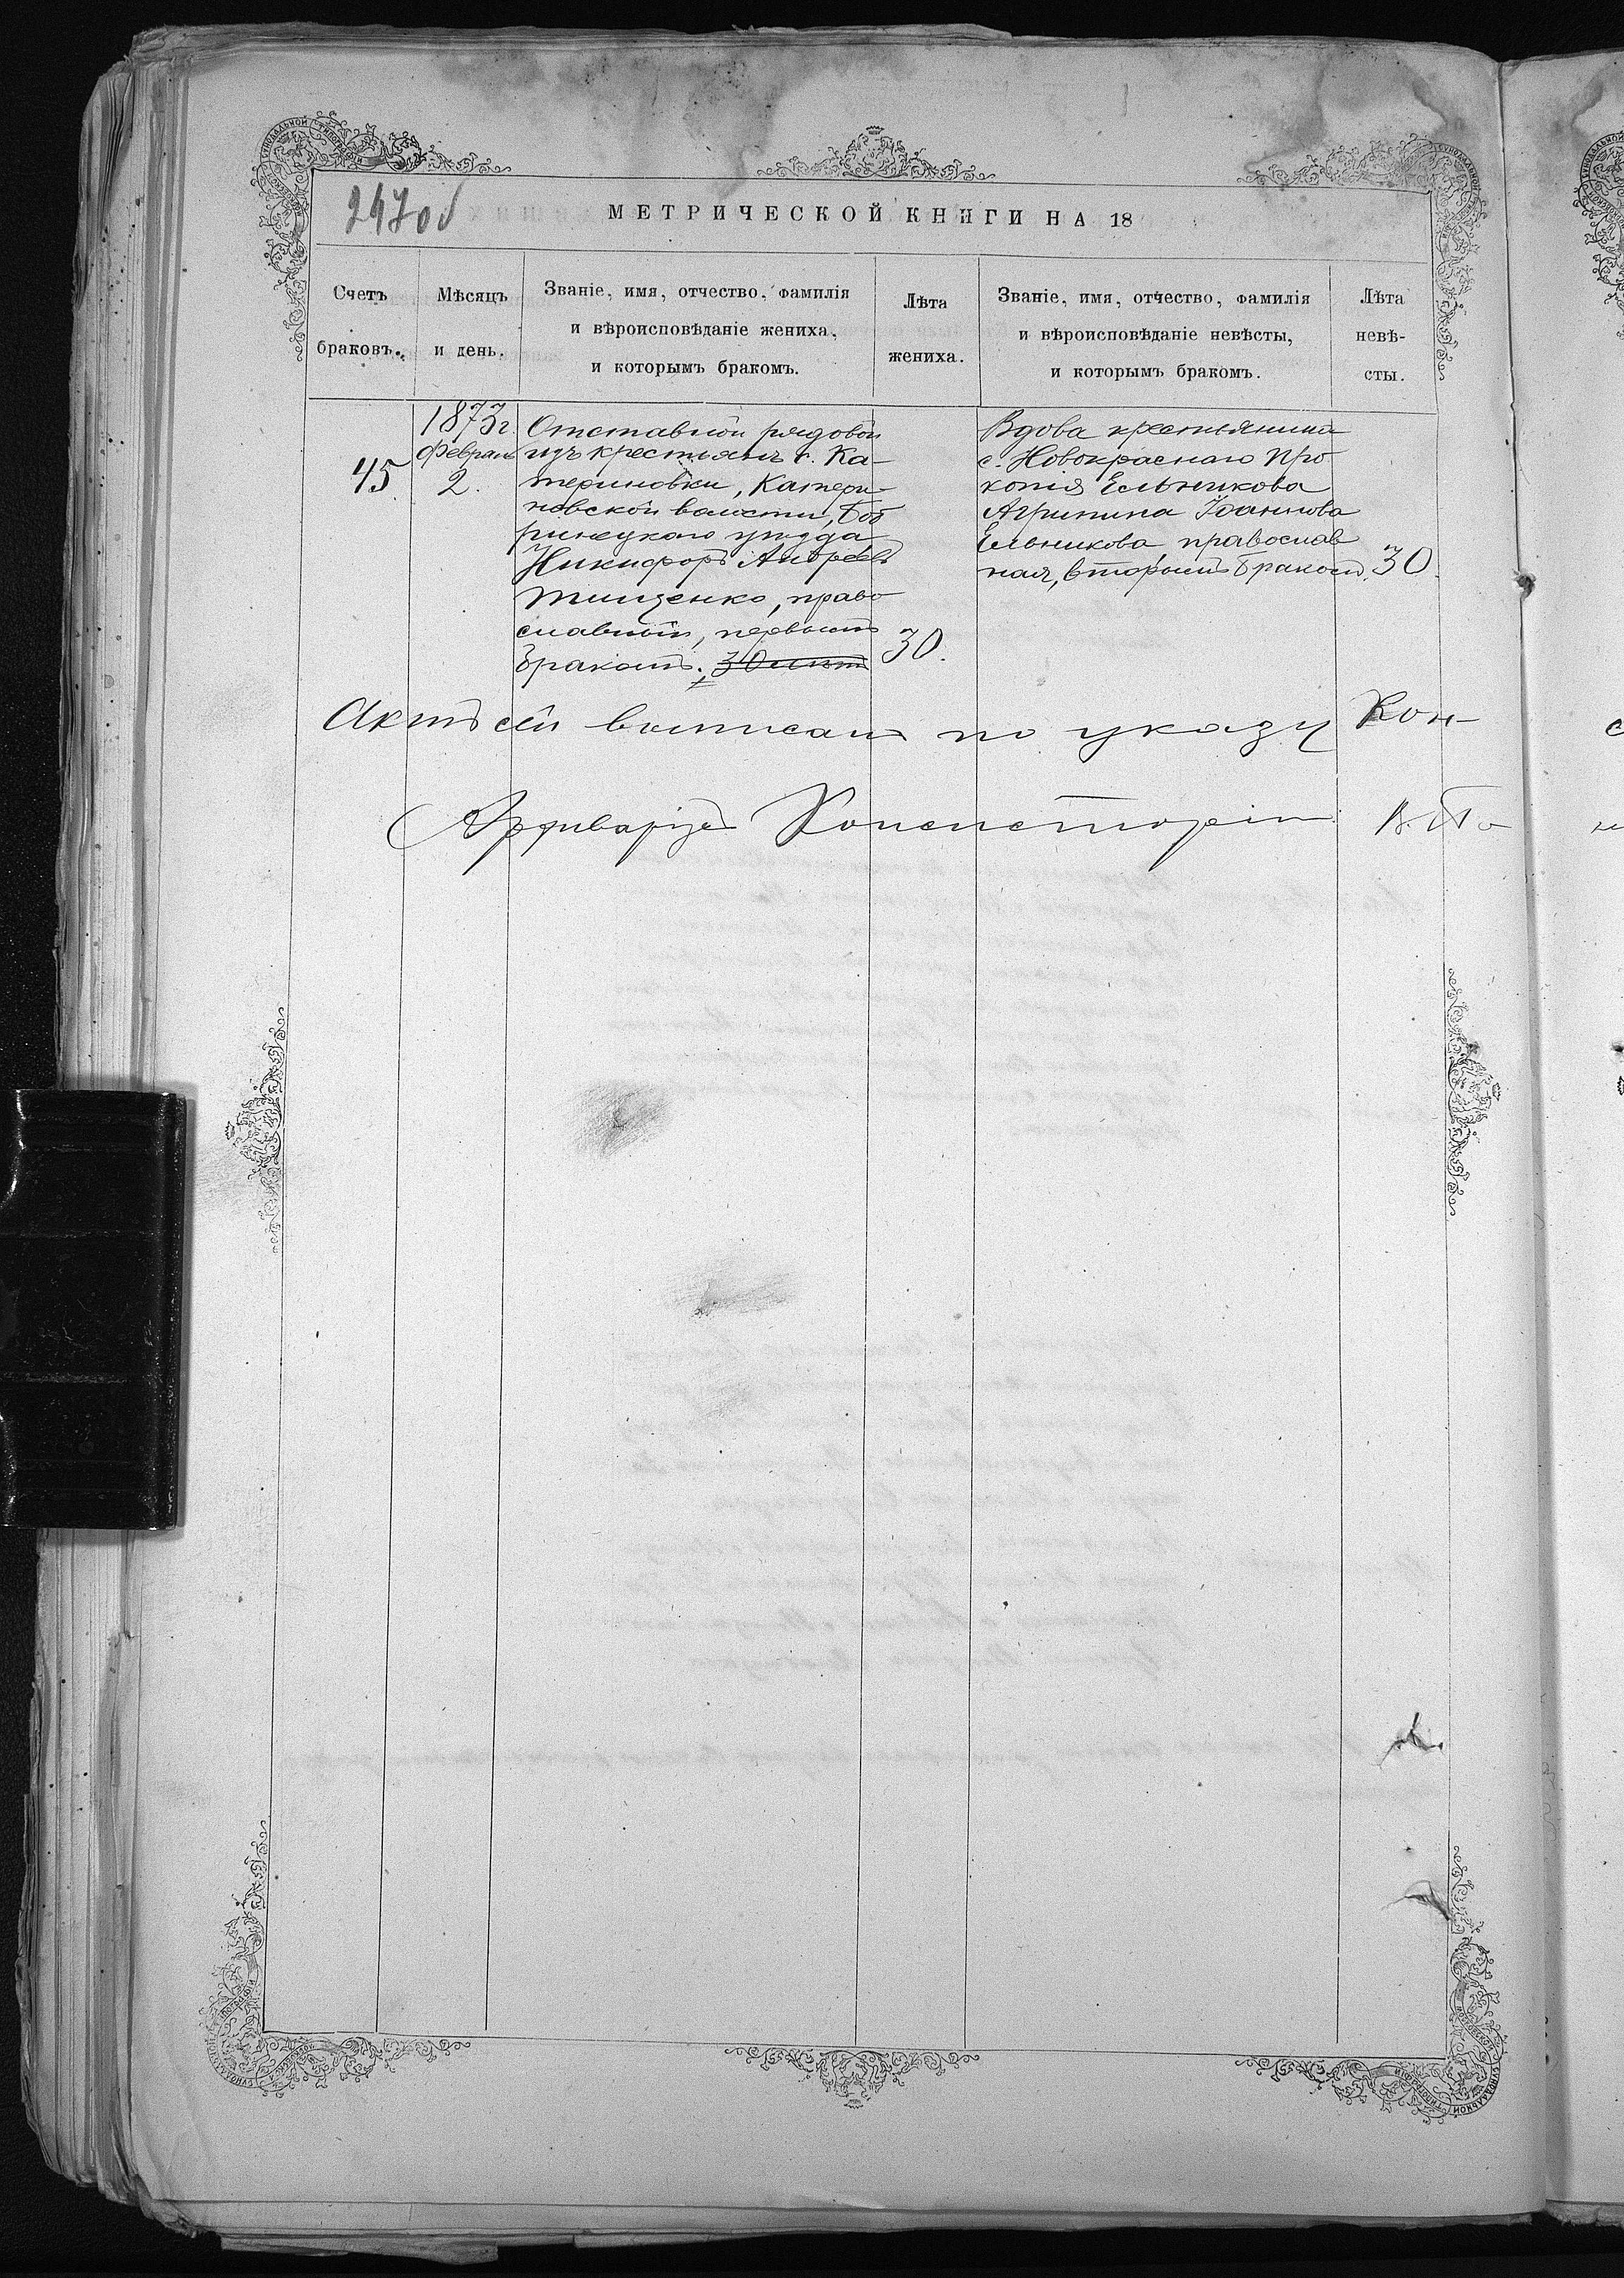 247об
МЕТРИЧЕСКОЙ КНИГИ НА 18
Счетъ браковъ.
Мѣсяцъ и день.
Званіе, имя, отчество, фамилія
и вѣроисповѣданіе жениха,
и которымъ бракомъ.
Лѣта жениха.
Званіе, имя, отчество, фамилія
и вѣроисповѣданіе невѣсты,
и которымъ бракомъ.
Лѣта невѣ-
сты.
45
1873 г.
Февраля
2.
Отставной рядовой
изъ крестьянъ с. Ка-
териновки, Катери-
новской волости, Боб
ринецкаго уѣзда
Никифоръ Андреевъ
Тищенко, право
славный, первымъ
бракомъ. 30 лѣтъ
30.
Вдова крестьянина
с. Новокраснаго Про
копія Ельникова
Агрипина Іоаннова
Ельникова, православ
ная, вторымъ бракомъ.
30.
Актъ сей выписанъ по указу Кон-
Архиваріусъ Консисторіи В. По